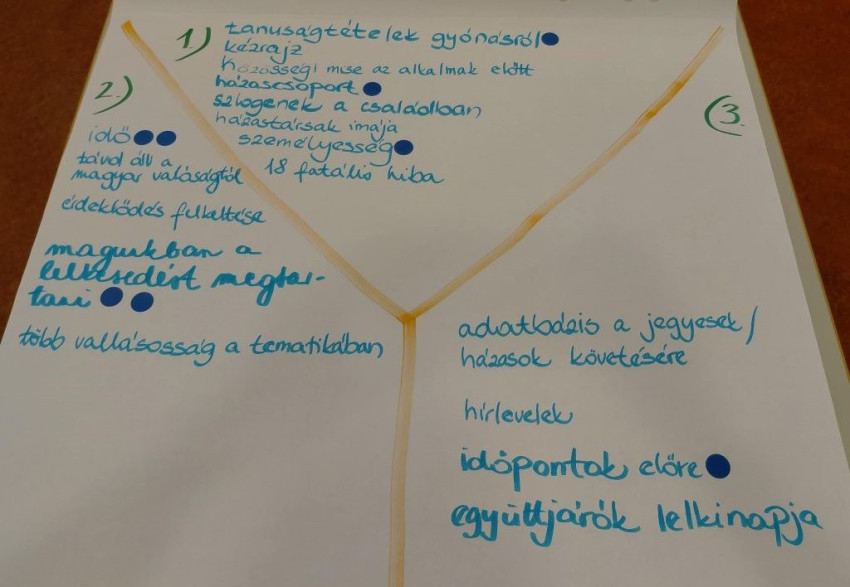 1)
tanuságtételek gyónásról
kézrajz
közösségi mise az alkalmak előtt
házascsoport
szlogenek a családban
házastársak imája
személyesség
18 fatális hiba
2)
idő
távol áll a
magyar valóságtól
érdeklődés felkeltése
magunkban a
lelkesedést megtar-
tani
több vallásosság a tematikában
3.
adatbázis a jegyesek/
házasok követésére
hírlevelek
időpontok előre
együttjárók lelkinapja